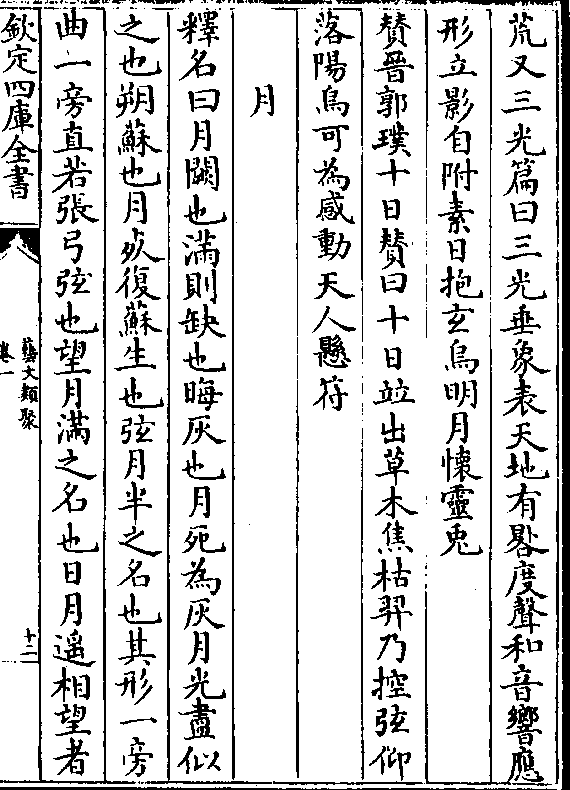 荒又三光篇曰三光垂象表天地有晷度聲和音響應
形立影自附素日抱玄烏明月懷靈兎
賛晉郭璞十日賛曰十日竝出草木焦枯羿乃控弦仰
落陽烏可為感動天人懸符
月
釋名曰月闕也滿則缺也晦灰也月死為灰月光盡似
之也朔蘇也月死復蘇生也弦月半之名也其形一旁
曲一旁直若張弓弦也望月滿之名也日月遥相望者
欽定四庫全書
藝文類聚
卷一
十二